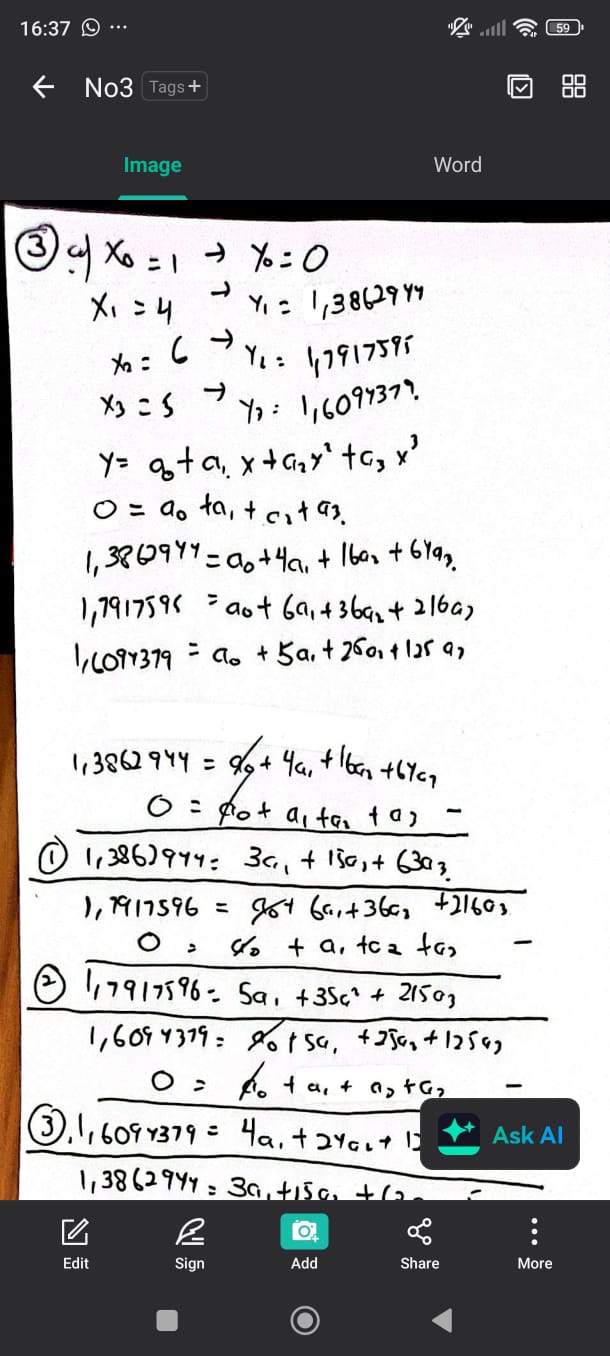 16:37 ...
59
No3 Tags+
Image Word
③ c) X₀ = 1 → Y₀ = 0
X₁ = 4 → Y₁ = 1,3862944
X₂ = 6 → Y₂ = 1,7917595
X₃ = 5 → Y₃ = 1,6094379.
Y = a₀ + a₁ x + a₂ x² + a₃ x³
0 = a₀ + a₁ + a₂ + a₃.
1,3862944 = a₀ + 4a₁ + 16a₂ + 64a₃.
1,7917596 = a₀ + 6a₁ + 36a₂ + 216a₃
1,6094379 = a₀ + 5a₁ + 25a₂ + 125a₃
1,3862944 = a₀ + 4a₁ + 16a₂ + 64a₃
0 = a₀ + a₁ + a₂ + a₃ −
① 1,3862944 = 3a₁ + 15a₂ + 63a₃.
1,7917596 = a₀ + 6a₁ + 36a₂ + 216a₃
0 = a₀ + a₁ + a₂ + a₃ −
② 1,7917596 = 5a₁ + 35a² + 215a₃
1,6094379 = a₀ + 5a₁ + 25a₂ + 125a₃
0 = a₀ + a₁ + a₂ + a₃ −
③. 1,6094379 = 4a₁ + 24a₂ + 12
Ask AI
1,3862944 = 3a₁ + 15a₂ +
Edit Sign Add Share More